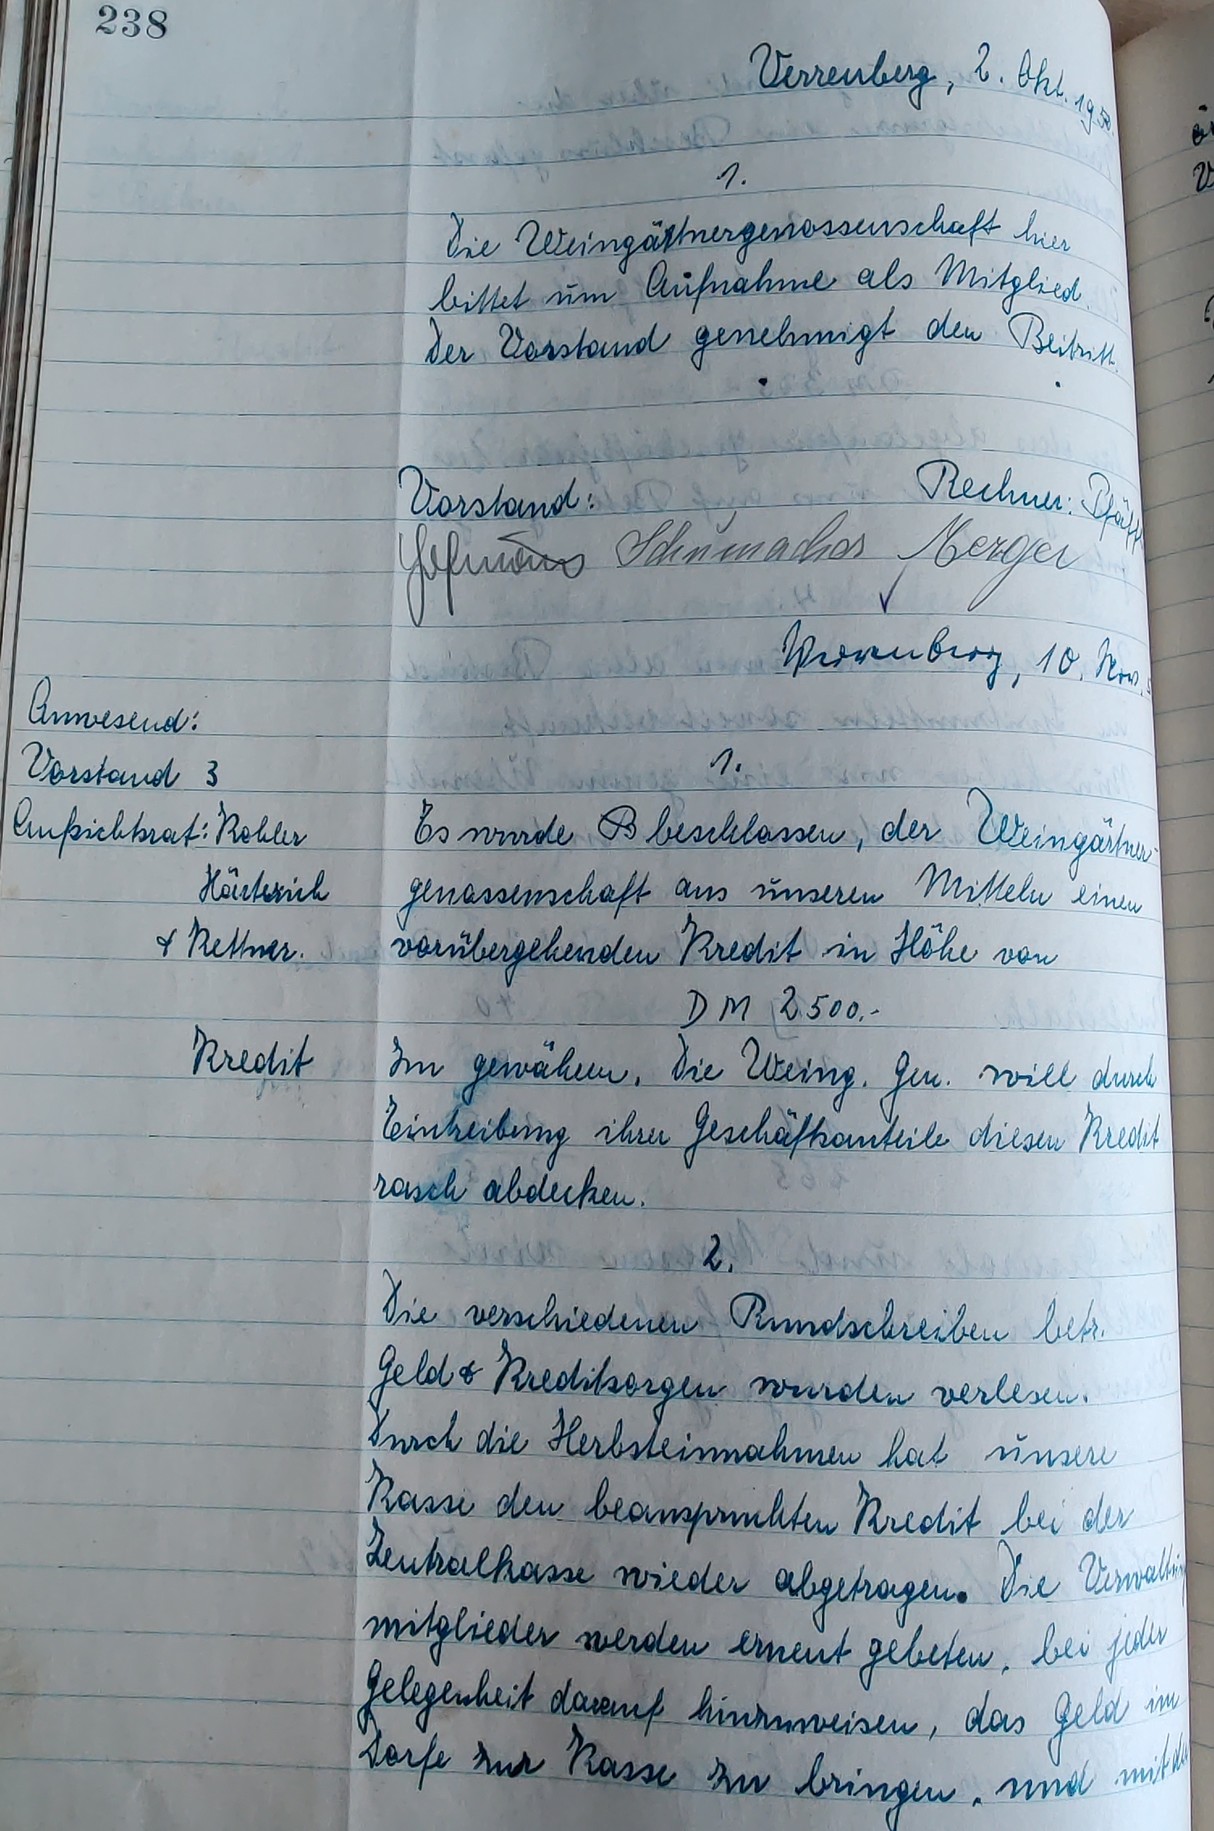 238
Verrenberg, 2. Okt. 1950.
1.
Die Weingärtnergenossenschaft hier
bittet um Aufnahme als Mitglied.
Der Vorstand genehmigt den Beitritt.
Vorstand: Rechner: Pfäff
Schumacher Mezger
Verrenberg, 10. Nov.
Anwesend:
Vorstand 3
1.
Aufsichtsrat: Kohler
Härterich
& Kettner.
Es wurde B beschlossen, der Weingärtner-
genossenschaft aus unseren Mitteln einen
vorübergehenden Kredit in Höhe von
DM 2500.-
Kredit
zu gewähren. Die Weing. Gen. will durch
Eintreibung ihrer Geschäftsanteile diesen Kredit
rasch abdecken.
2.
Die verschiedenen Rundschreiben betr.
Geld & Kreditsorgen wurden verlesen.
Durch die Herbsteinnahmen hat unsere
Kasse den beanspruchten Kredit bei der
Zentralkasse wieder abgetragen. Die Verwaltung
mitglieder werden erneut gebeten, bei jeder
Gelegenheit darauf hinzuweisen, das Geld im
Dorfe zur Kasse zu bringen, und mit